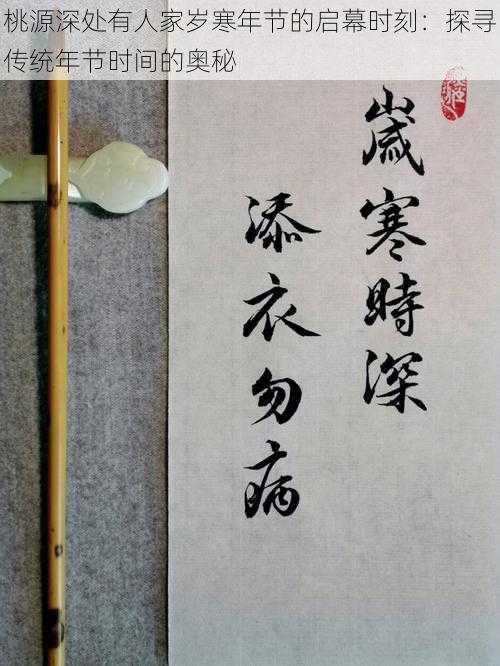 桃源深处有人家岁寒年节的启幕时刻：探寻
传统年节时间的奥秘
歲寒時深
添衣勿病